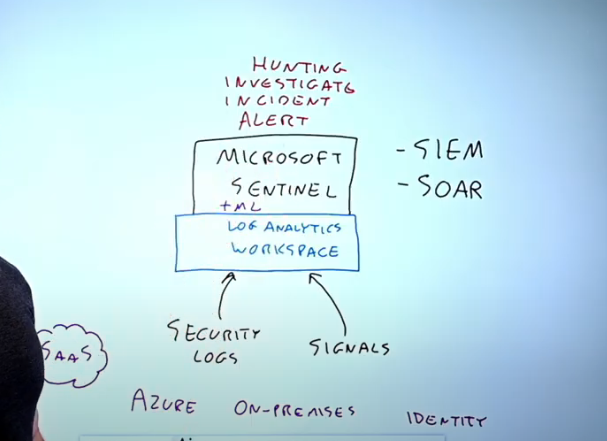 HUNTING
INVESTIGATE
INCIDENT
ALERT
MICROSOFT
SENTINEL
+ML
LOG ANALYTICS
WORKSPACE
- SIEM
- SOAR
SECURITY
LOGS
SIGNALS
SAAS
AZURE ON-PREMISES IDENTITY